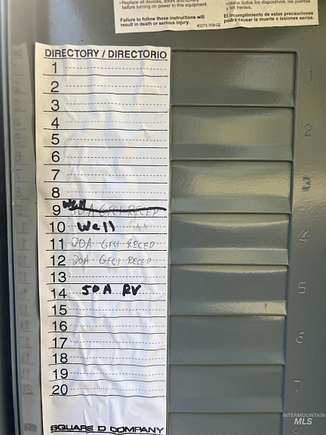 •Replace all devices, doors and covers
before turning on power to this equipment.
Failure to follow these instructions will
result in death or serious injury.
todos los dispositivos, las puertas
El incumplimiento de estas precauciones
podrá causar la muerte o lesiones serias.
DIRECTORY / DIRECTORIO
1
2
3
4
5
6
7
8
9 Well 20A GFCI RECED
10 Well
11 20A GFCI RECED
12 20A GFCI RECED
13
14 50A RV
15
16
17
18
19
20
SQUARE D COMPANY
1
2
3
4
5
INTERMOUNTAIN
MLS